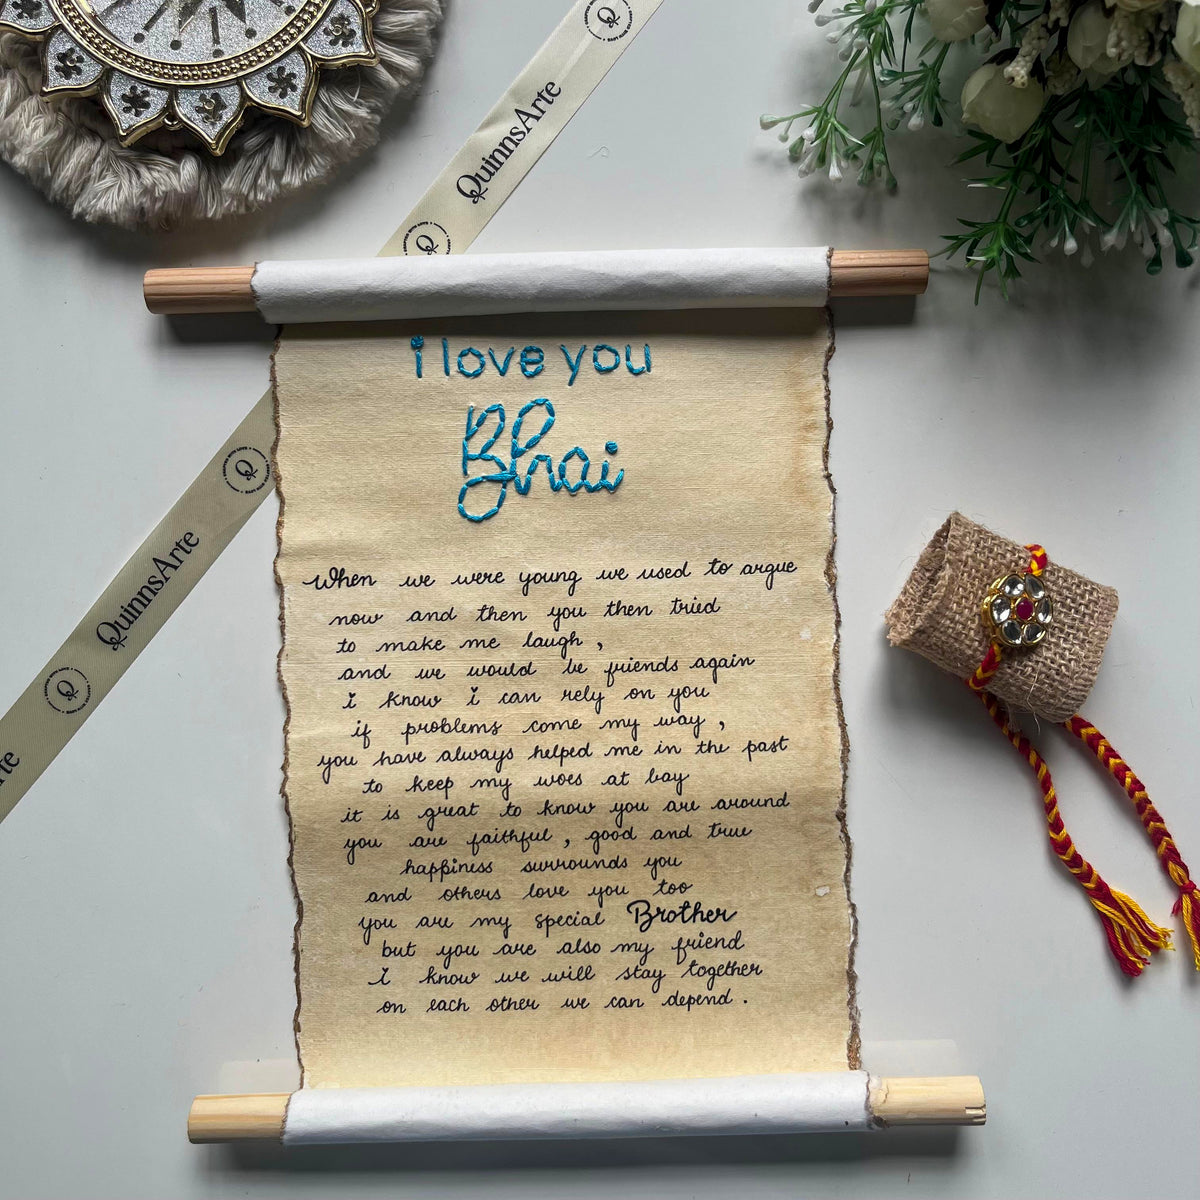 QuinnsArte
i love you
Bhai
QuinnsArte
When we were young we used to argue
now and then you then tried
to make me laugh ,
and we would be friends again
i know i can rely on you
if problems come my way ,
you have always helped me in the past
to keep my woes at bay
it is great to know you are around
you are faithful , good and true
happiness surrounds you
and others love you too
you are my special Brother
but you are also my friend
i know we will stay together
on each other we can depend .
rte